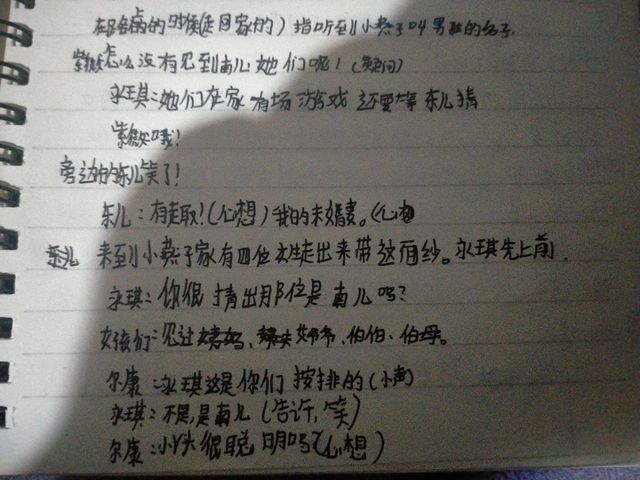 在路痴的时候(走回家的)指听到小燕子叫男孩的名子.
紫薇怎么没有见到南儿她们呢!(疑问)
永琪:她们在家有场游戏 还要等东儿猜
紫薇:哦!
旁边的东儿笑了!
东儿:有趣取!(心想)我的未婚妻。(心想
东儿 来到小燕子家有四位女生走出来带这面纱。永琪先上前.
永琪:你很猜出那位是南儿吗?
女孩们:见过姨妈、姨爷爷、伯伯、伯母。
尔康:永琪这是你们按排的(小声)
永琪:不是,是南儿(告诉,笑)
尔康:小丫头很聪明吗?(心想)